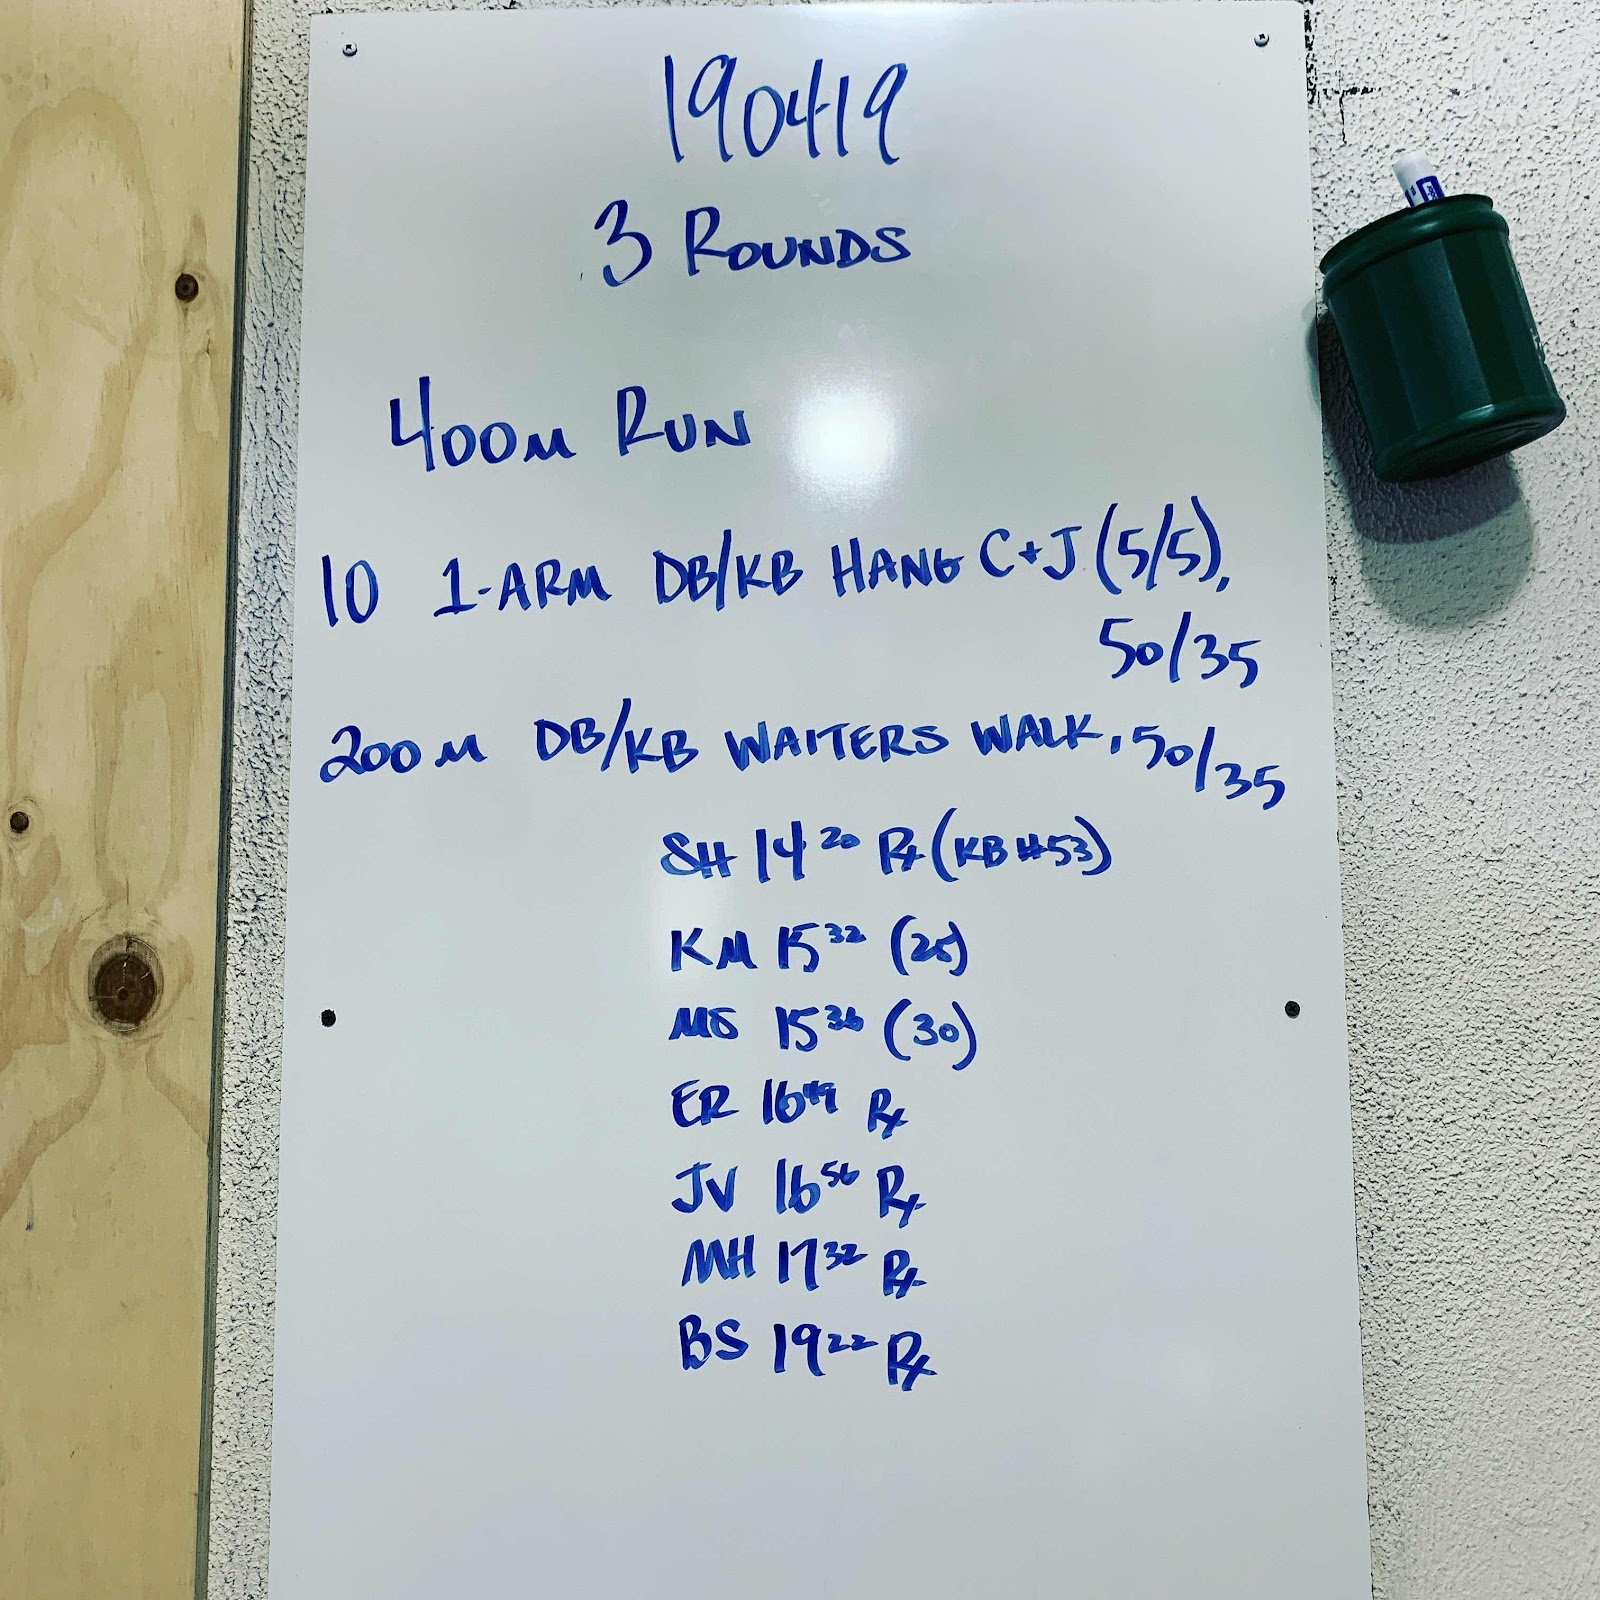 190419
3 ROUNDS
400M RUN
10 1-ARM DB/KB HANG C+J (5/5),
50/35
200M DB/KB WAITERS WALK, 50/35
SH 14 20 Rx (KB #53)
KM 15 32 (25)
MS 15 36 (30)
ER 16 49 Rx
JV 16 56 Rx
MH 17 32 Rx
BS 19 22 Rx